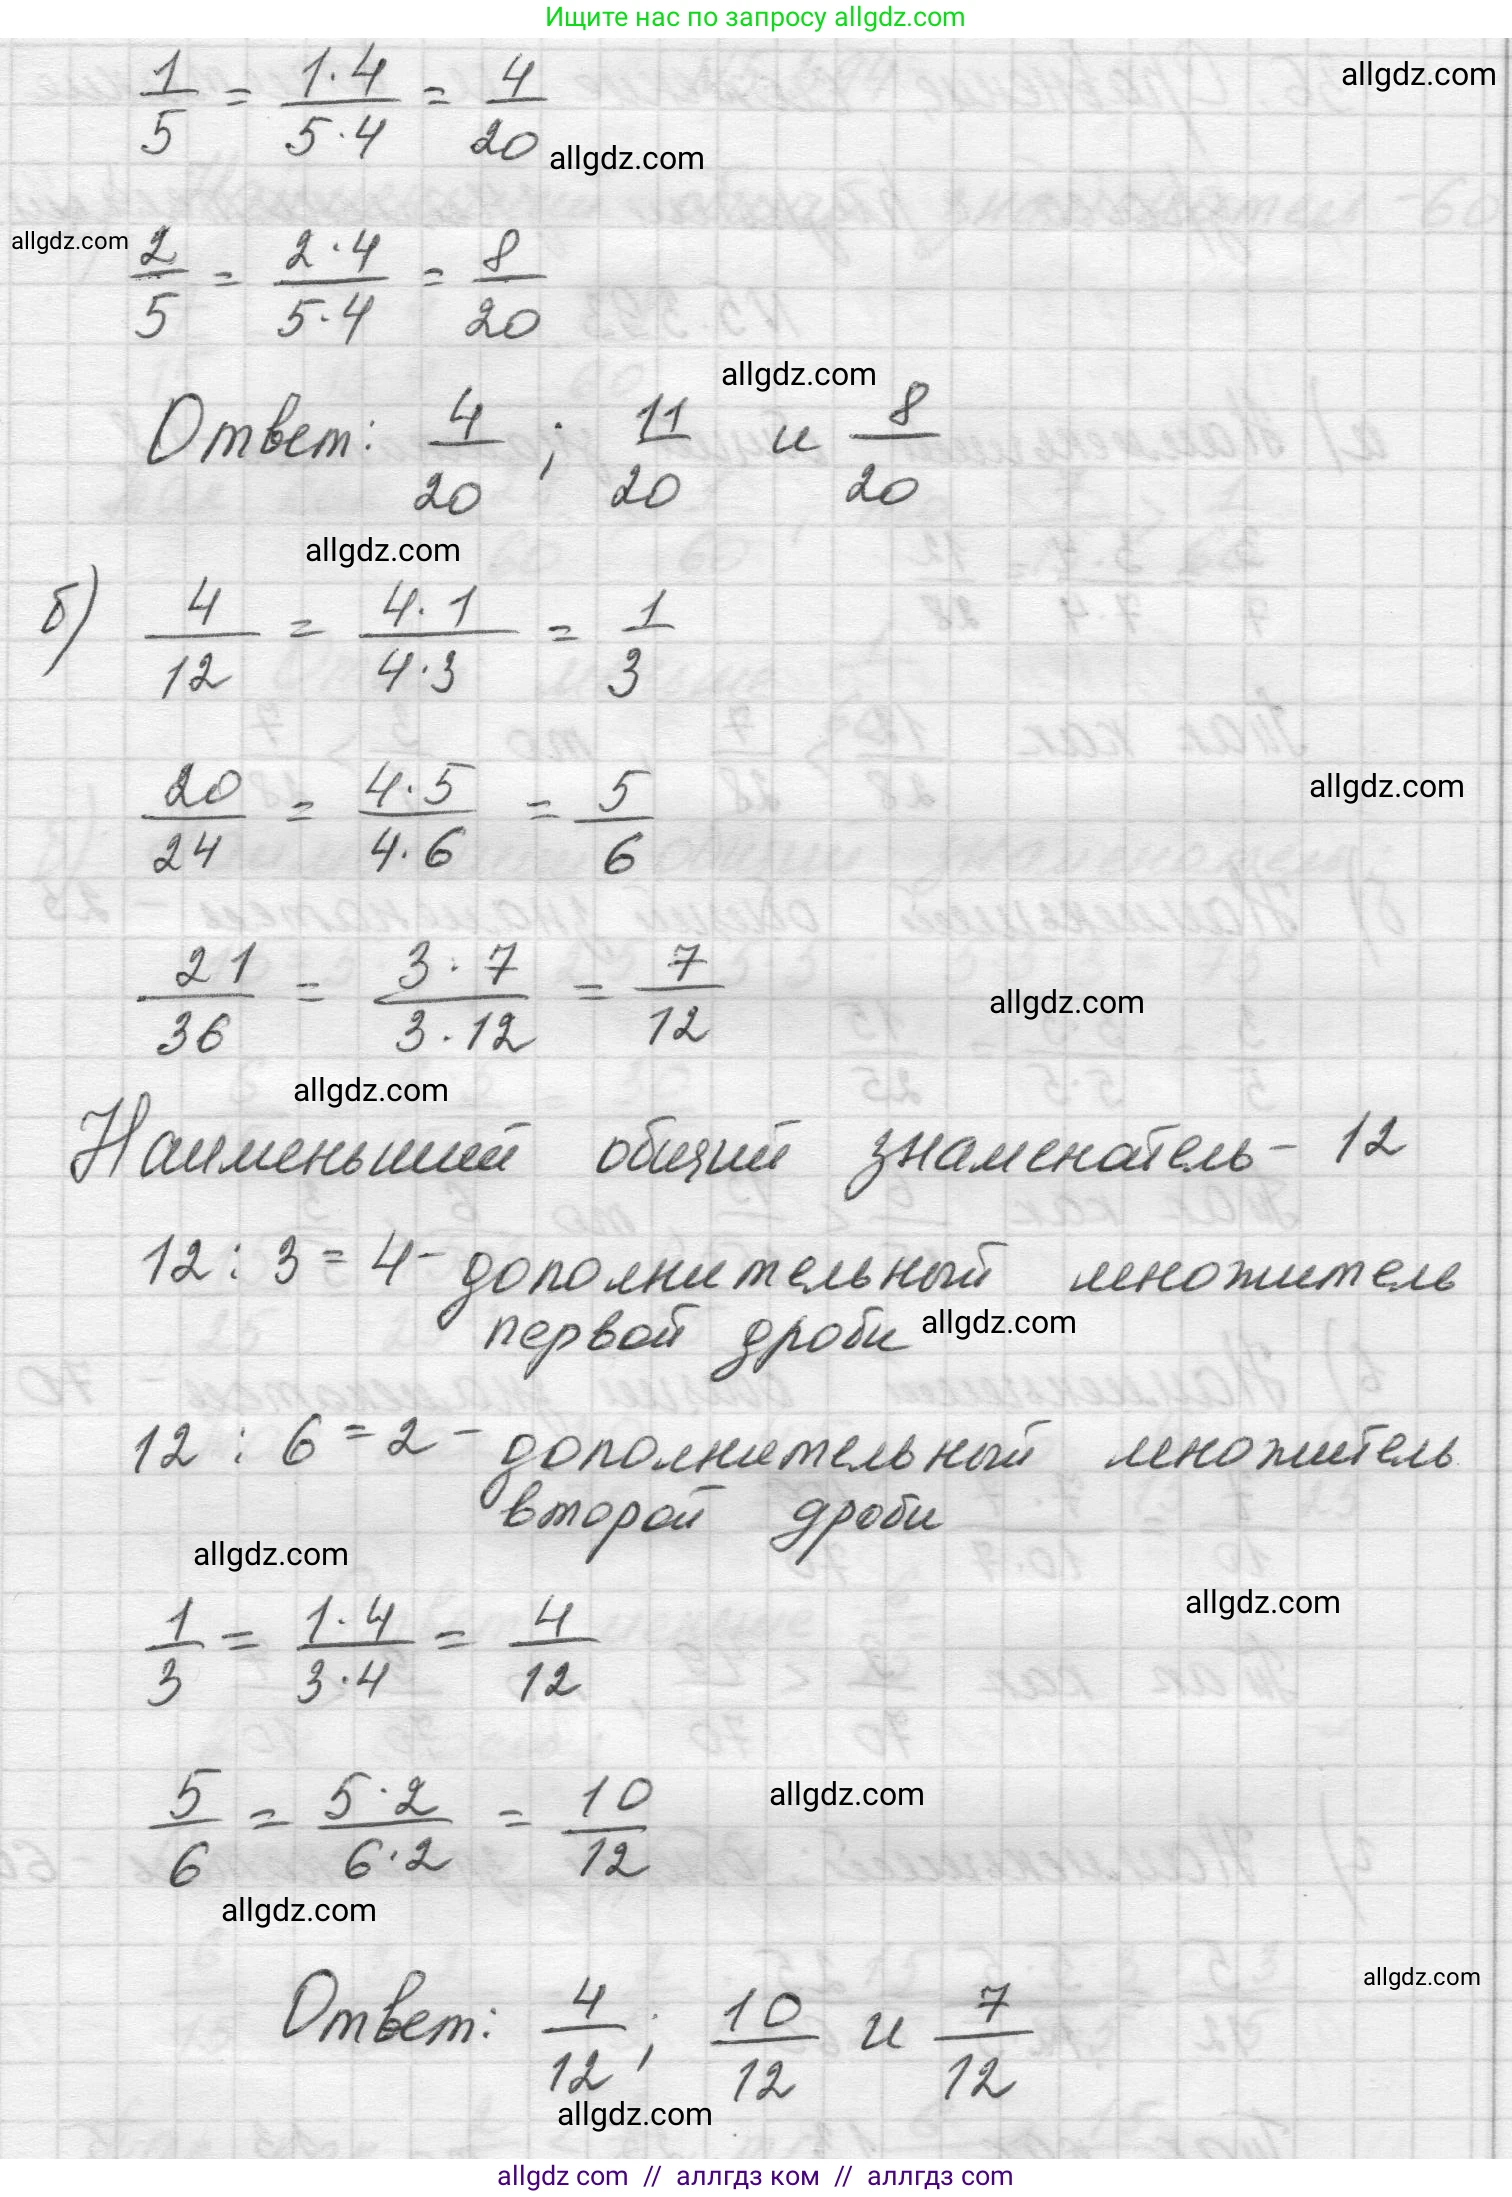 Ищите нас по запросу allgdz.com
allgdz.com
1/5 = 1·4/5·4 = 4/20
allgdz.com
allgdz.com
2/5 = 2·4/5·4 = 8/20
allgdz.com
Ответ: 4/20 ; 11/20 и 8/20
allgdz.com
б) 4/12 = 4·1/4·3 = 1/3
20/24 = 4·5/4·6 = 5/6
allgdz.com
21/36 = 3·7/3·12 = 7/12
allgdz.com
allgdz.com
Наименьший общий знаменатель - 12
12 : 3 = 4 - дополнительный множитель
первой дроби
allgdz.com
12 : 6 = 2 - дополнительный множитель
второй дроби
allgdz.com
allgdz.com
1/3 = 1·4/3·4 = 4/12
5/6 = 5·2/6·2 = 10/12
allgdz.com
allgdz.com
allgdz.com
Ответ: 4/12 ; 10/12 и 7/12
allgdz.com
allgdz com // аллгдз ком // аллгдз com